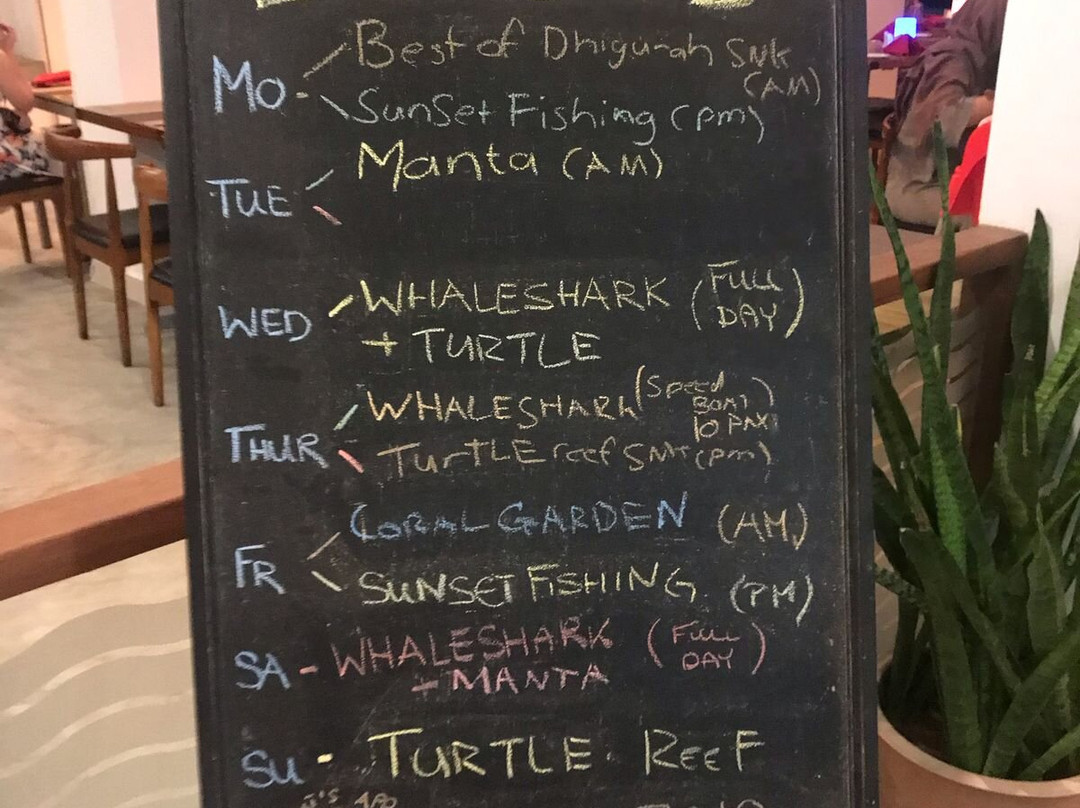 MO - Best of Dhigurah SNK (AM)
Sunset Fishing (pm)
TUE Manta (AM)
WED WHALESHARK (FULL DAY)
+ TURTLE
THUR WHALESHARK (Speed BOAT 10 PAX)
TURTLE reef SNK (pm)
FR CORAL GARDEN (AM)
SUNSET FISHING (PM)
SA - WHALESHARK (FULL DAY)
- MANTA
SU - TURTLE REEF